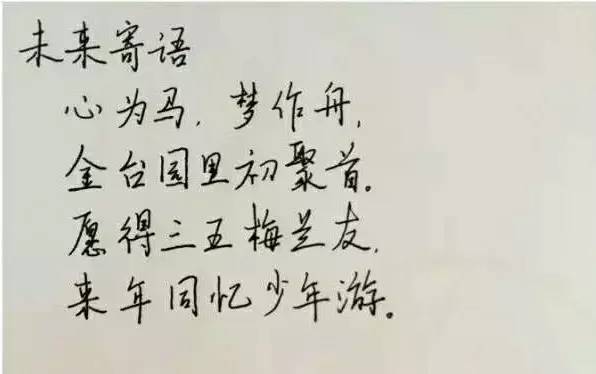 未来寄语
心为马，梦作舟，
金台园里初聚首。
愿得三五梅兰友，
来年同忆少年游。